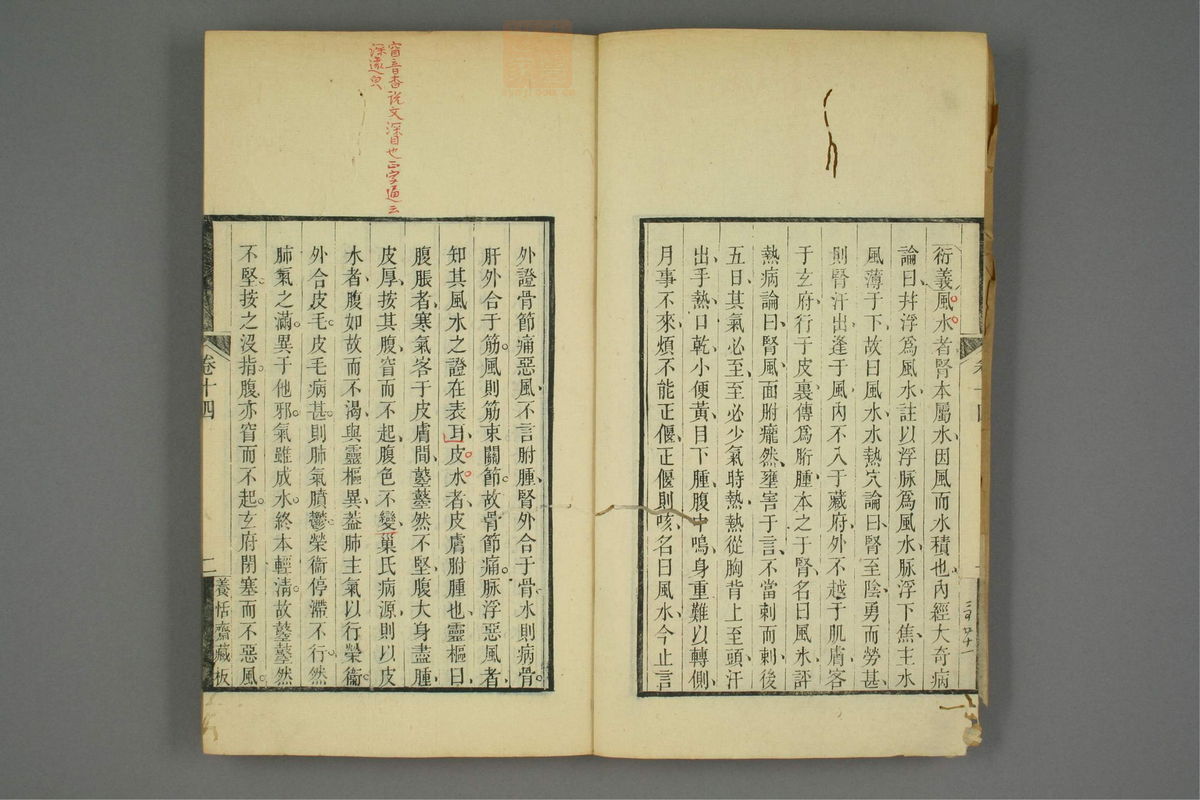 衍義風水者腎本屬水因風而水積也內經大奇病
論曰幷浮爲風水註以浮脉爲風水脉浮下焦主水
風薄于下故曰風水水熱穴論曰腎至陰勇而勞甚
則腎汗出逢于風內不入于藏府外不越于肌膚客
于玄府行于皮裏傳爲胕腫本之于腎名曰風水評
熱病論曰腎風面胕癰然壅害于言不當刺而刺後
五日其氣必至至必少氣時熱熱從胸背上至頭汗
出手熱口乾小便黃目下腫腹中鳴身重難以轉側
月事不來煩不能正偃正偃則咳名曰風水今止言
外證骨節痛惡風不言胕腫腎外合于骨水則病骨
肝外合于筋風則筋束關節故骨節痛脉浮惡風者
知其風水之證在表耳皮水者皮膚胕腫也靈樞曰
腹脹者寒氣客于皮膚間鼞鼞然不堅腹大身盡腫
皮厚按其腹窅而不起腹色不變巢氏病源則以皮
水者腹如故而不渴與靈樞異葢肺主氣以行榮衞
外合皮毛皮毛病甚則肺氣膹鬱榮衞停滯不行然
肺氣之滿異于他邪氣雖成水終本輕淸故鼞鼞然
不堅按之沒指腹亦窅而不起玄府閉塞而不惡風
卷十四
二
養恬齋藏板
窅音杳說文深目也正字通云
深遠皃